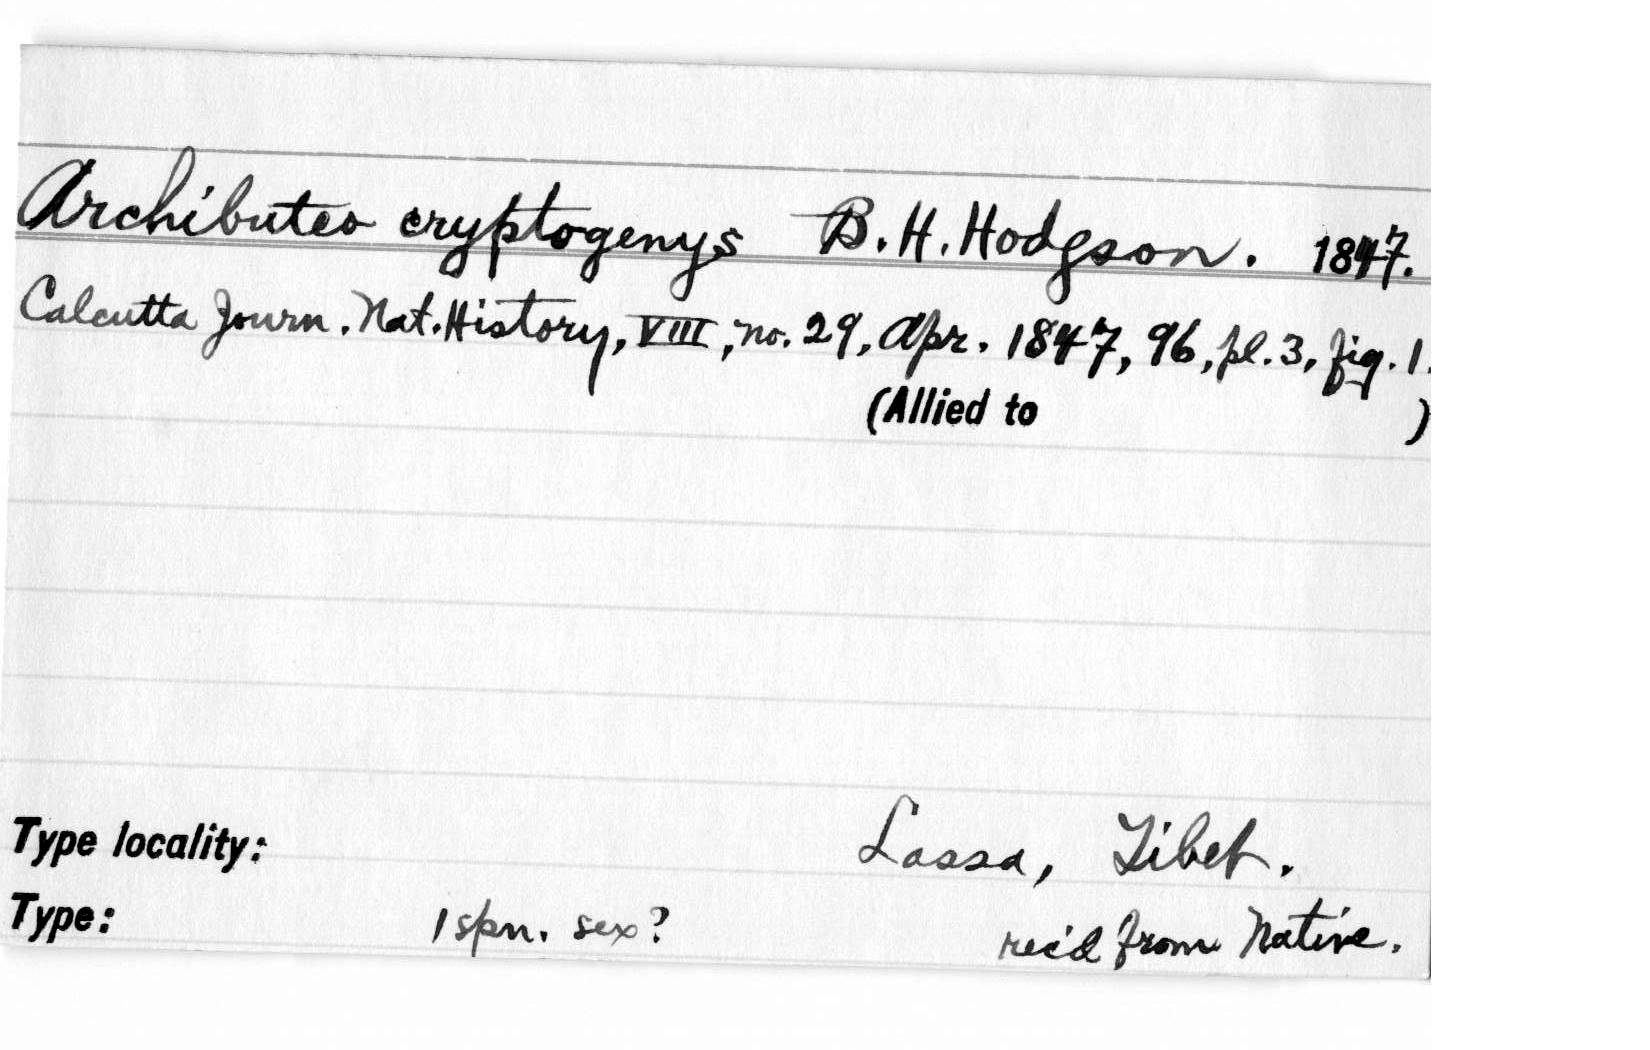 Archibuteo cryptogenys B. H. Hodgson. 1847.
Calcutta Journ. Nat. History, VIII, no. 29, Apr. 1847, 96, pl. 3, fig. 1.
(Allied to )
Type locality: Lassa, Tibet.
Type: 1 spn. sex? rec'd from Native.